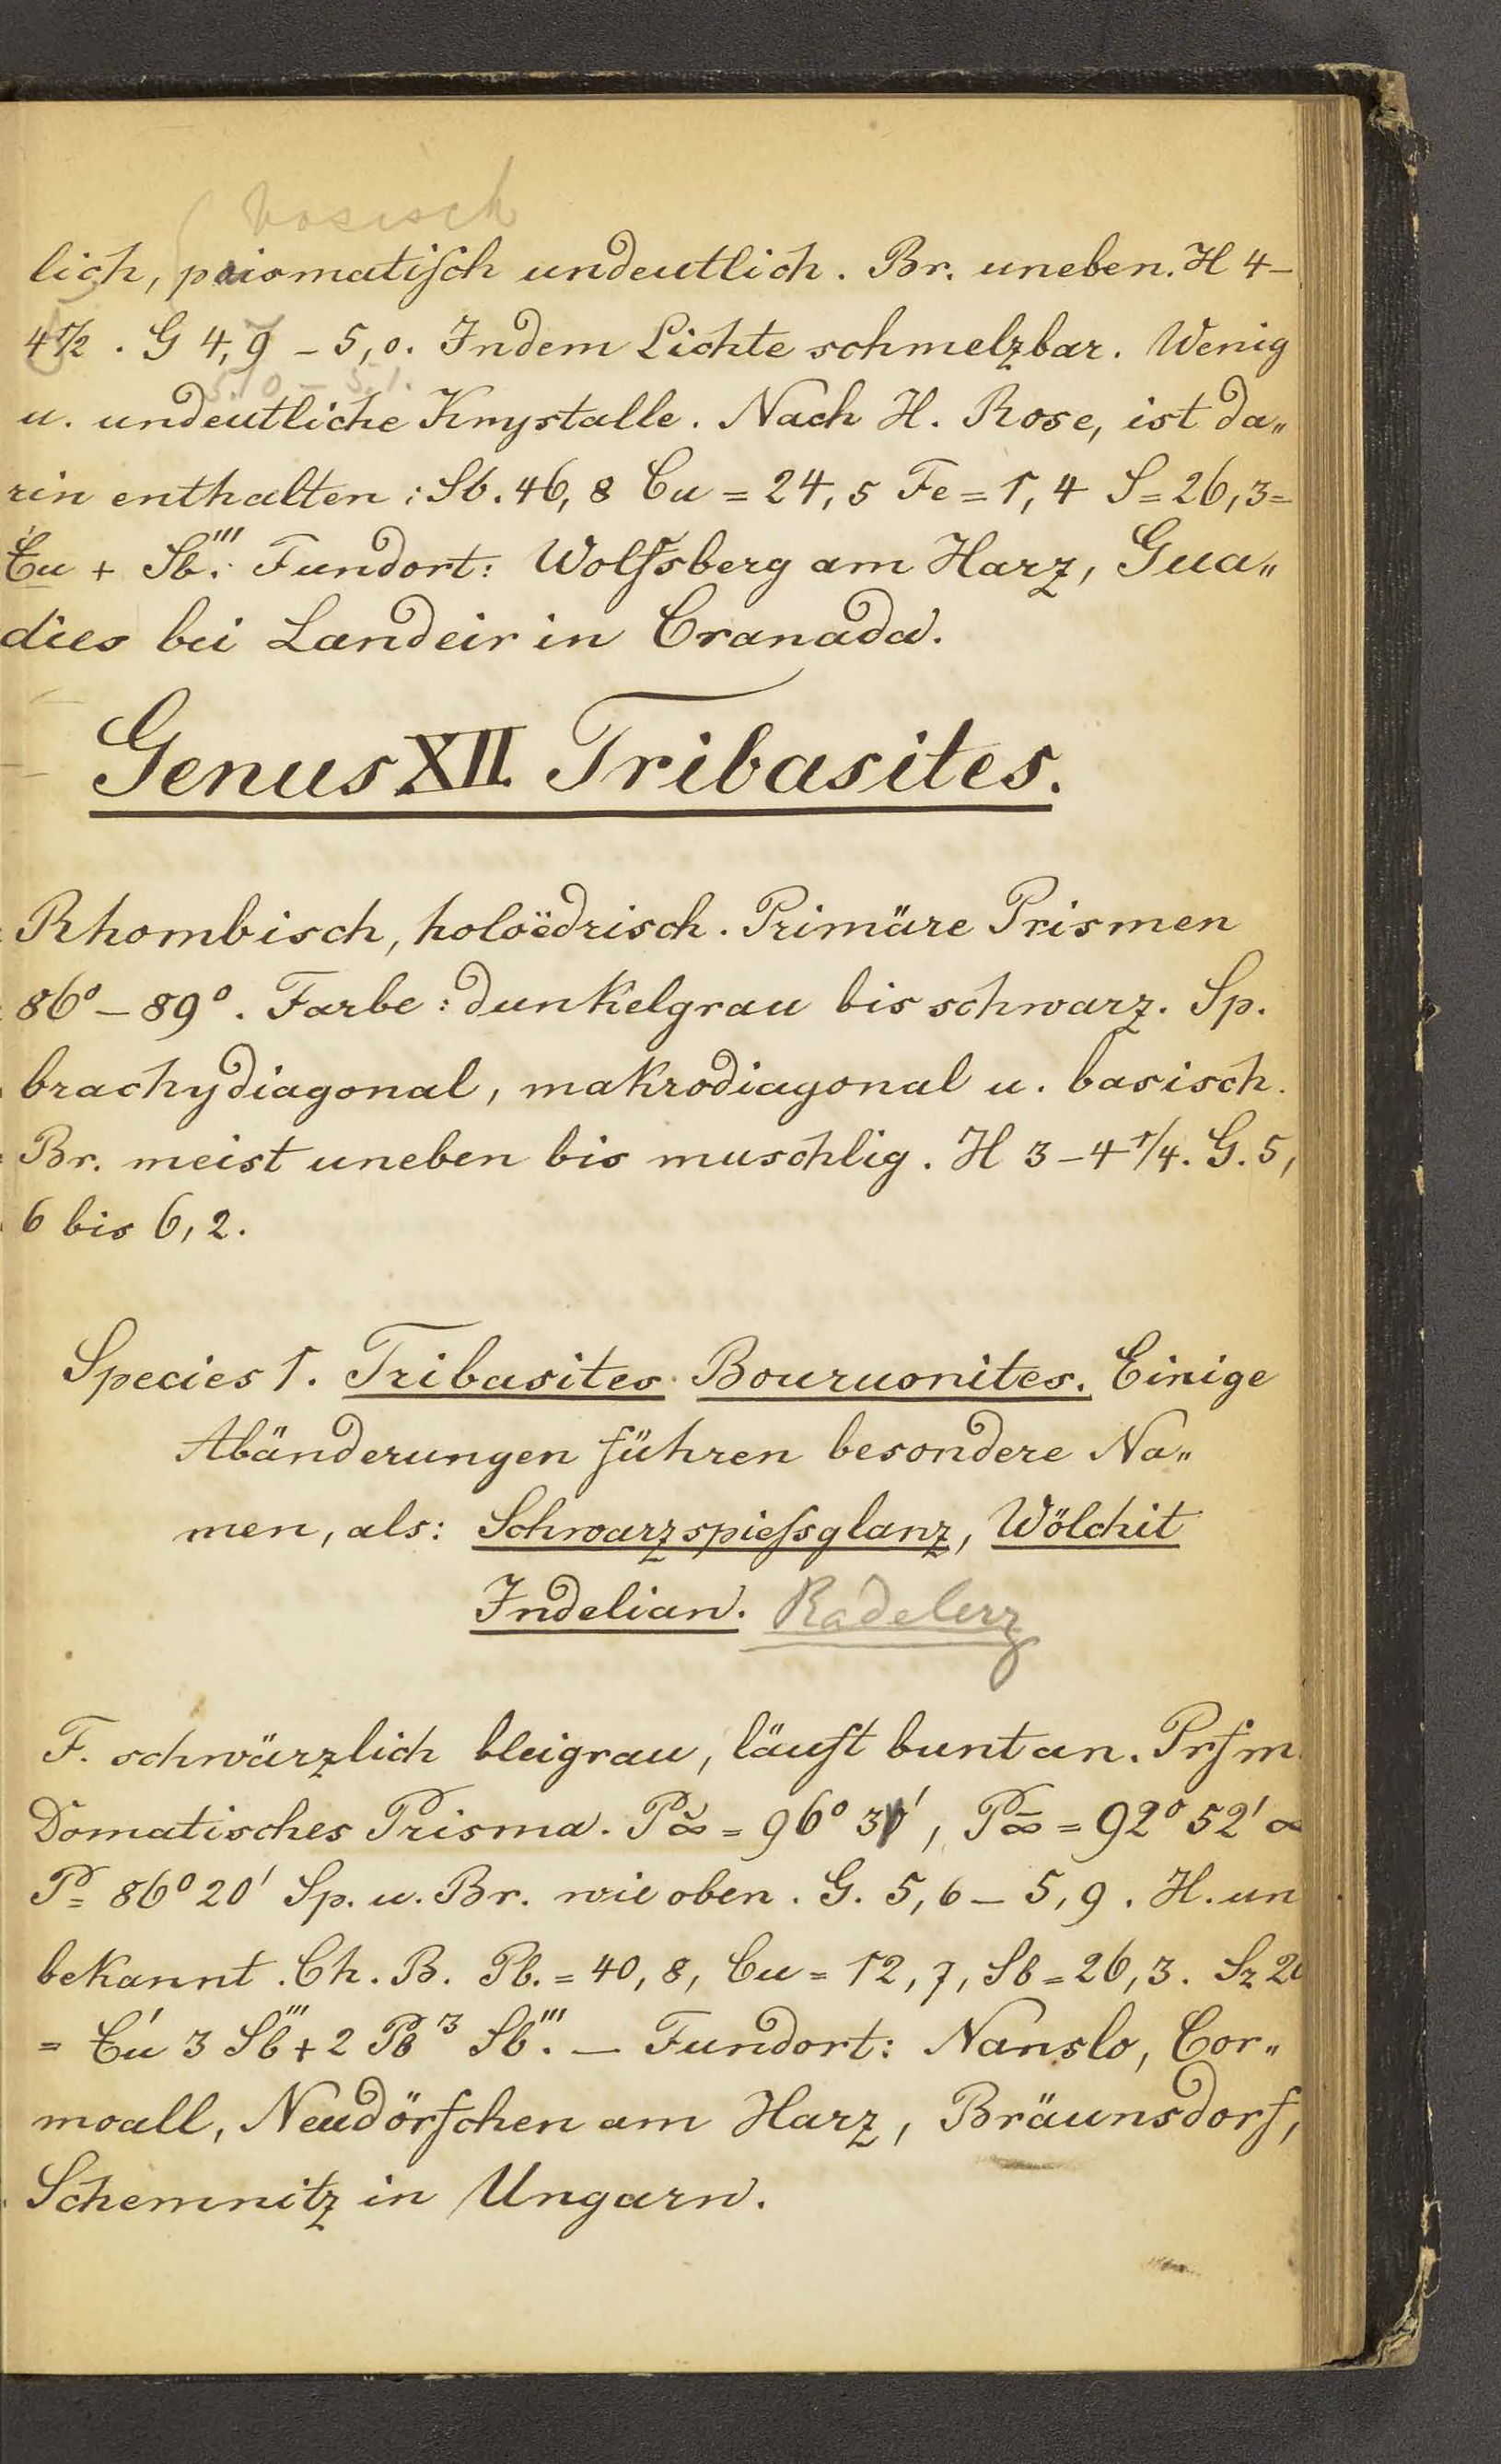 basisch
lich, prismatiſch undeutlich. Br. uneben. H 4–
4 1/2. G 4,9 – 5,0. In dem Lichte schmelzbar. Wenig
5,0 – 5,1.
u. undeutliche Krystalle. Nach H. Rose, ist da„
rin enthalten: Sb. 46,8 Cu = 24,5 Fe = 1,4 S = 26,3 =
Cu + Sb‴. Fundort: Wolfsberg am Harz, Gua„
dies bei Landeir in Cranada.
Genus XII. Tribasites.
Rhombisch, holoëdrisch. Primäre Prismen
86° – 89°. Farbe: dunkelgrau bis schwarz. Sp.
brachydiagonal, makrodiagonal u. basisch.
Br. meist uneben bis muschlig. H 3 – 4 1/4. G. 5,
6 bis 6,2.
Species 1. Tribasites Bouruonites. Einige
Abänderungen führen besondere Na„
men, als: Schwarzspieſsglanz, Wölchit
Indelian. Radelerz
F. schwärzlich bleigrau, läuft bunt an. Prſm
Domatisches Prisma. P̆∞ = 96° 30′, P̄∞ = 92° 52′ ∞
P = 86° 20′ Sp. u. Br. wie oben. G. 5,6 – 5,9. H. un
bekannt. Ch. B. Pb. = 40,8, Cu = 12,7, Sb = 26,3. Sz 20
= Cu′ 3 Sb‴ + 2 Pb′3 Sb‴. – Fundort: Nanslo, Cor„
moall, Neudörfchen am Harz, Bräunsdorf,
Schemnitz in Ungarn.